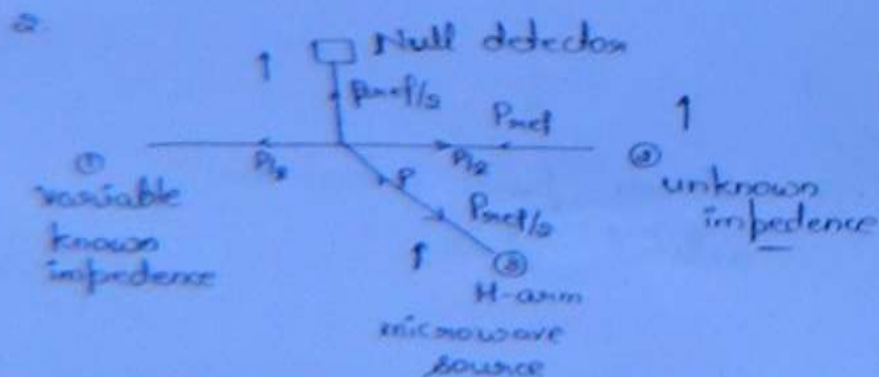 2.
Null detector
Pref/2
Pref
①
P/2
P/2
②
variable
known
impedence
P
Pref/2
unknown
impedence
③
H-arm
microwave
source